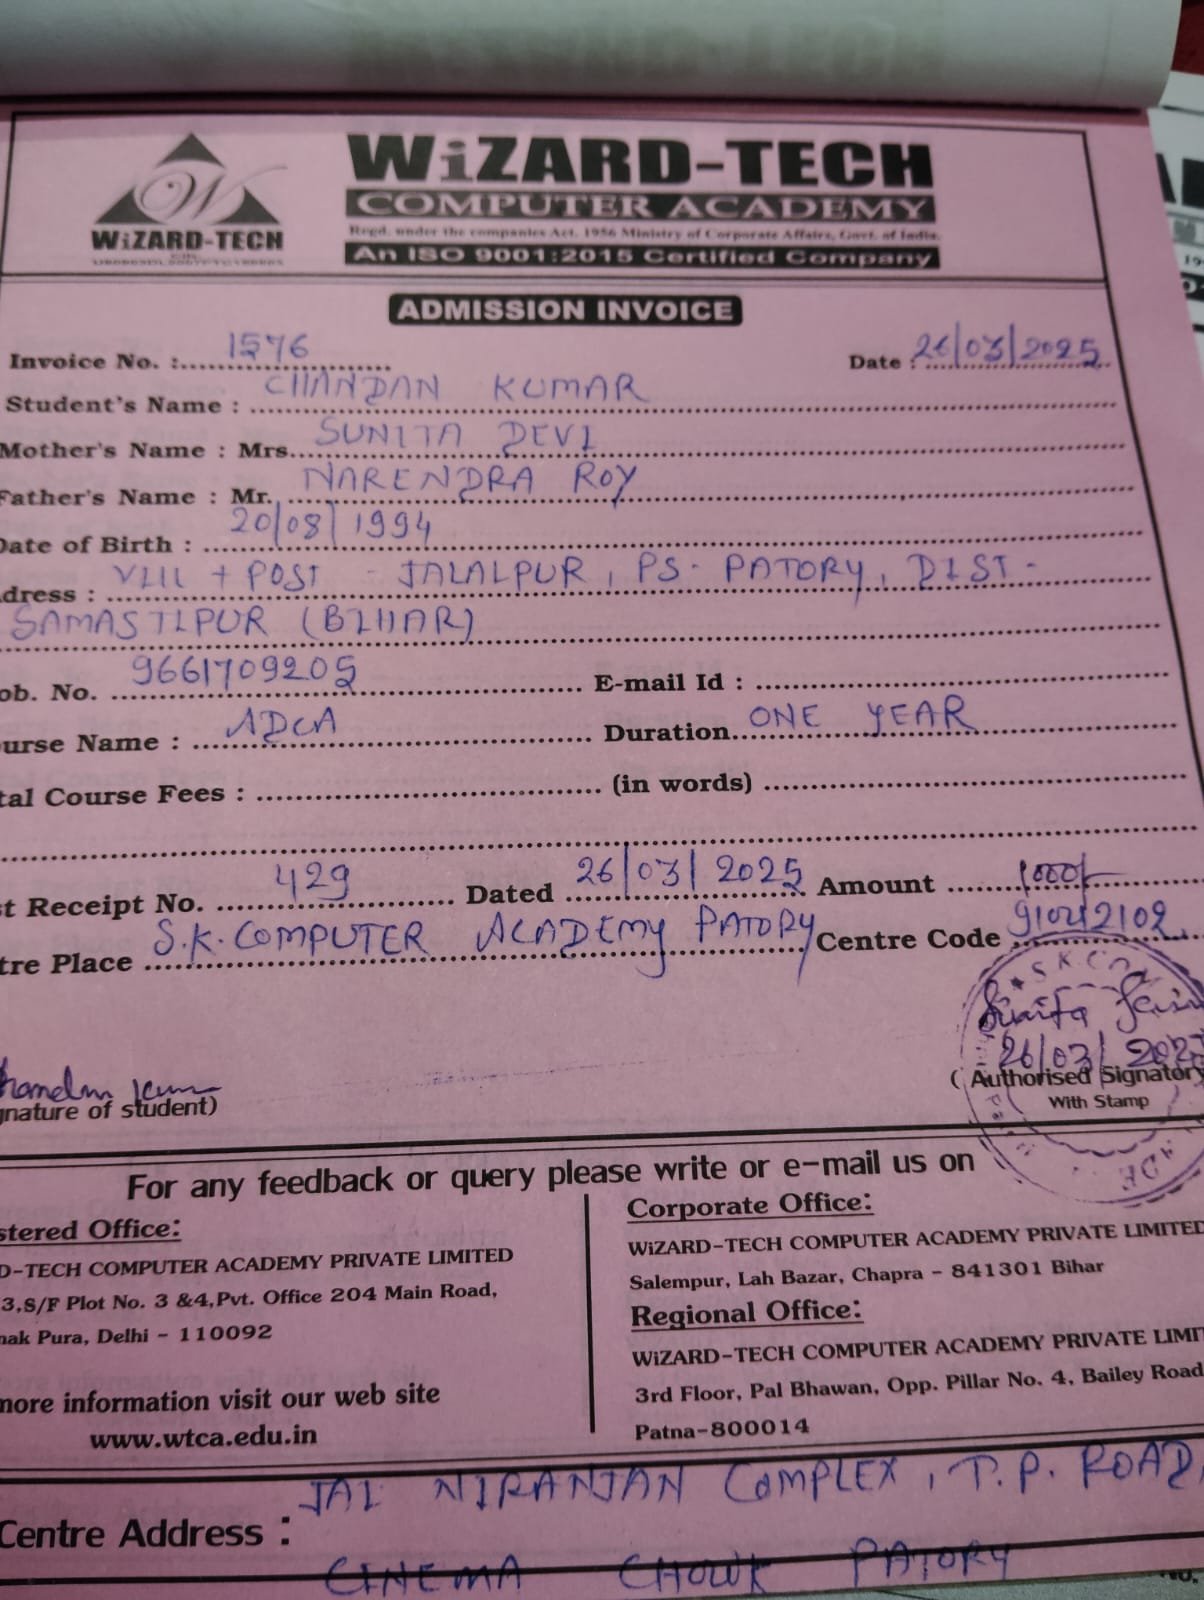 WiZARD-TECH
COMPUTER ACADEMY
Regd. under the companies Act. 1956 Ministry of Corporate Affairs, Govt. of India.
An ISO 9001:2015 Certified Company
WiZARD-TECH
ADMISSION INVOICE
Invoice No. : 1576 Date : 26/03/2025
Student's Name : CHANDAN KUMAR
Mother's Name : Mrs. SUNITA DEVI
Father's Name : Mr. NARENDRA ROY
Date of Birth : 20/08/1994
dress : VILL + POST - JALALPUR, PS- PATORY, DIST-
SAMASTIPUR (BIHAR)
ob. No. 9661709205 E-mail Id :
urse Name : ADCA Duration ONE YEAR
tal Course Fees : (in words)
t Receipt No. 429 Dated 26/03/2025 Amount 1000/-
tre Place S.K. COMPUTER ACADEMY PATORY Centre Code
26/03/2025
gnature of student) ( Authorised Signatory
With Stamp
For any feedback or query please write or e-mail us on
stered Office:
D-TECH COMPUTER ACADEMY PRIVATE LIMITED
3,S/F Plot No. 3 &4,Pvt. Office 204 Main Road,
nak Pura, Delhi - 110092
more information visit our web site
www.wtca.edu.in
Corporate Office:
WiZARD-TECH COMPUTER ACADEMY PRIVATE LIMITED
Salempur, Lah Bazar, Chapra - 841301 Bihar
Regional Office:
WiZARD-TECH COMPUTER ACADEMY PRIVATE LIMIT
3rd Floor, Pal Bhawan, Opp. Pillar No. 4, Bailey Road
Patna-800014
Centre Address : JAI NIRANJAN COMPLEX, T.P. ROAD,
CINEMA CHOWK PATORY